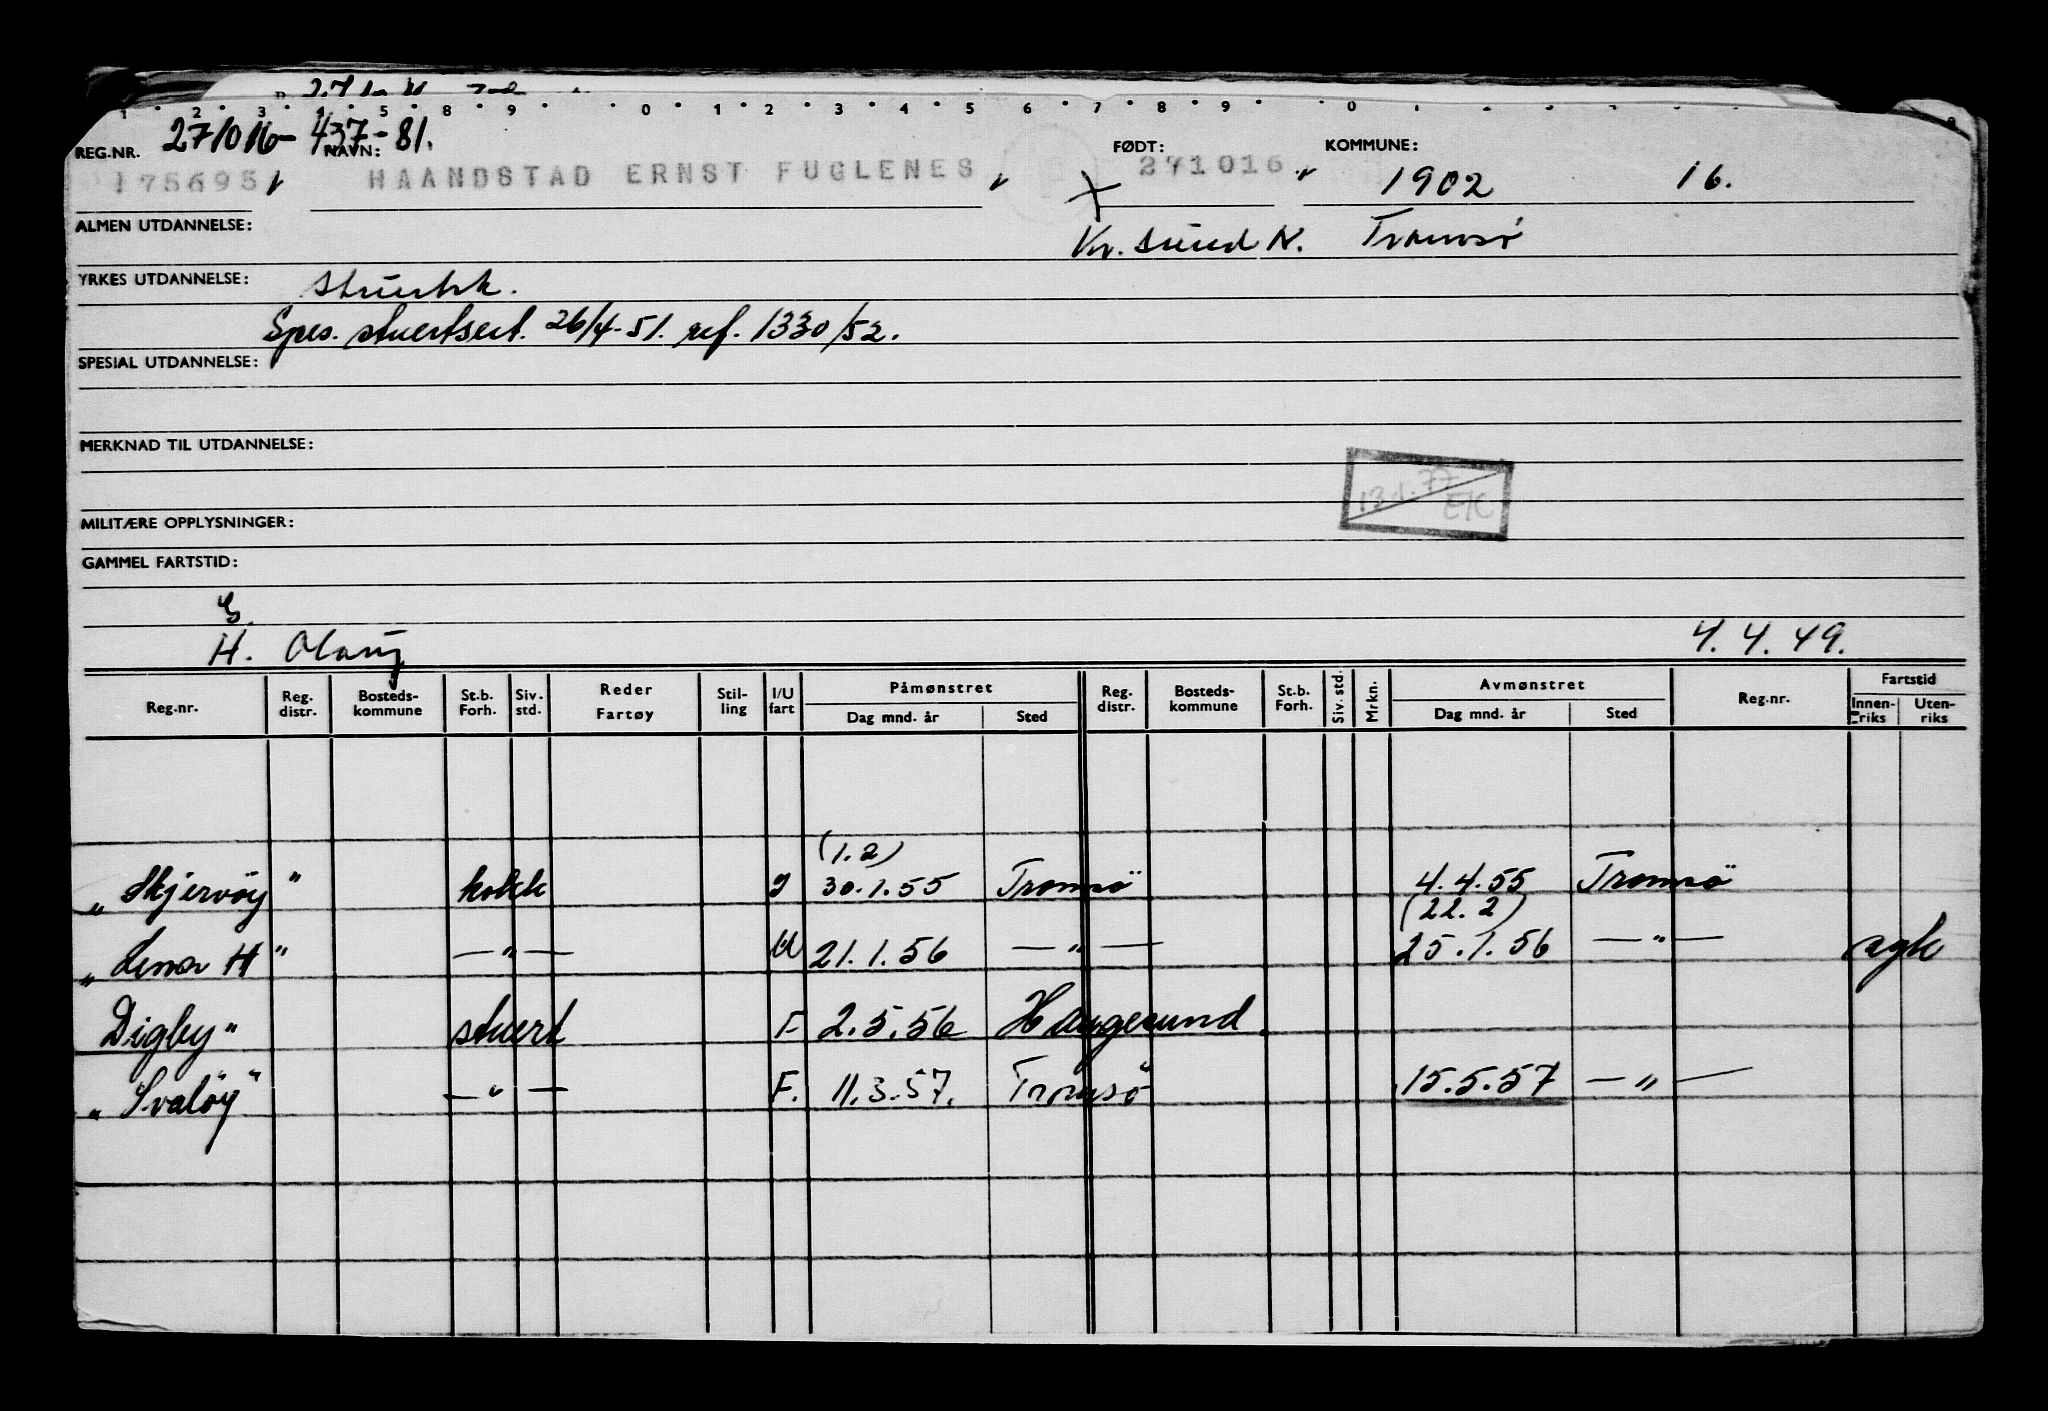 1 2 3 4 5 8 9 0 1 2 3 4 5 6 7 8 9 0
REG.NR. 271016- NAVN: 437-81. FØDT: KOMMUNE:
175695 HAANDSTAD ERNST FUGLENES 271016 1902 16.
ALMEN UTDANNELSE: Kr. sund N. Tromsø
YRKES UTDANNELSE:
Spes. stuertsert. 26/4-51. ref. 1330/52.
SPESIAL UTDANNELSE:
MERKNAD TIL UTDANNELSE:
MILITÆRE OPPLYSNINGER:
GAMMEL FARTSTID:
H. Olaug 4.4.49.
Reg.nr. Reg. distr. Bosteds-kommune St.b. Forh. Siv. std. Reder Fartøy Stil-ling I/U fart Påmønstret Dag mnd. år Sted Reg. distr. Bosteds-kommune St.b. Forh. Siv. std. Mrkn. Avmønstret Dag mnd. år Sted Reg.nr. Fartstid Innen-riks Uten-riks
(1.2)
„Skjervöy" kokk I 30.1.55 Tromsö 4.4.55 Tromsö
(22.2)
„Lena H" —„— U 21.1.56 —„— 25.1.56 —„—
Digby" stuert F. 2.5.56 Haugesund.
„Svalöy" —„— F. 11.3.57. Tromsö 15.5.57 —„—